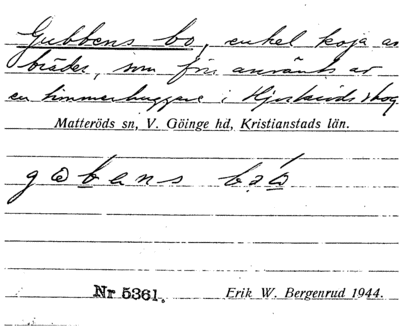 Gubbens bo, enkel koja av
bräder, som förr använts av
en timmerhuggare i Hjortaröds skog
Matteröds sn, V. Göinge hd, Kristianstads län.
Nr 5361. Erik W. Bergenrud 1944.